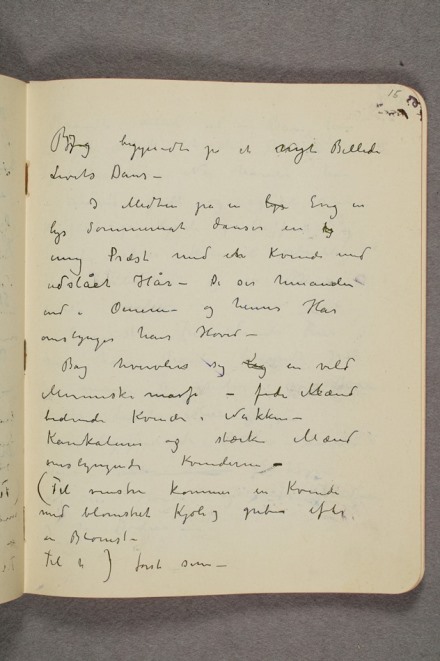 16
begyndte på et nyt Billede
Livets Dans –
I Midten på en Eng en
lys Sommernat danser en
ung Præst med en Kvinde med
udslået Hår – De ser hinanden
ind i Øinene – og hennes Hår
omslynger hans Hoved –
Bag hvirvler sig en vild
Menneske masse – fede Mænd
bidende Kvinder i Nakken –
Karikaturer og stærke Mænd
omslyngende Kvinderne –
(Til venstre kommer en Kvinde
med blomstret Kjole og griber efter
en Blomst –
Til h ) først som –